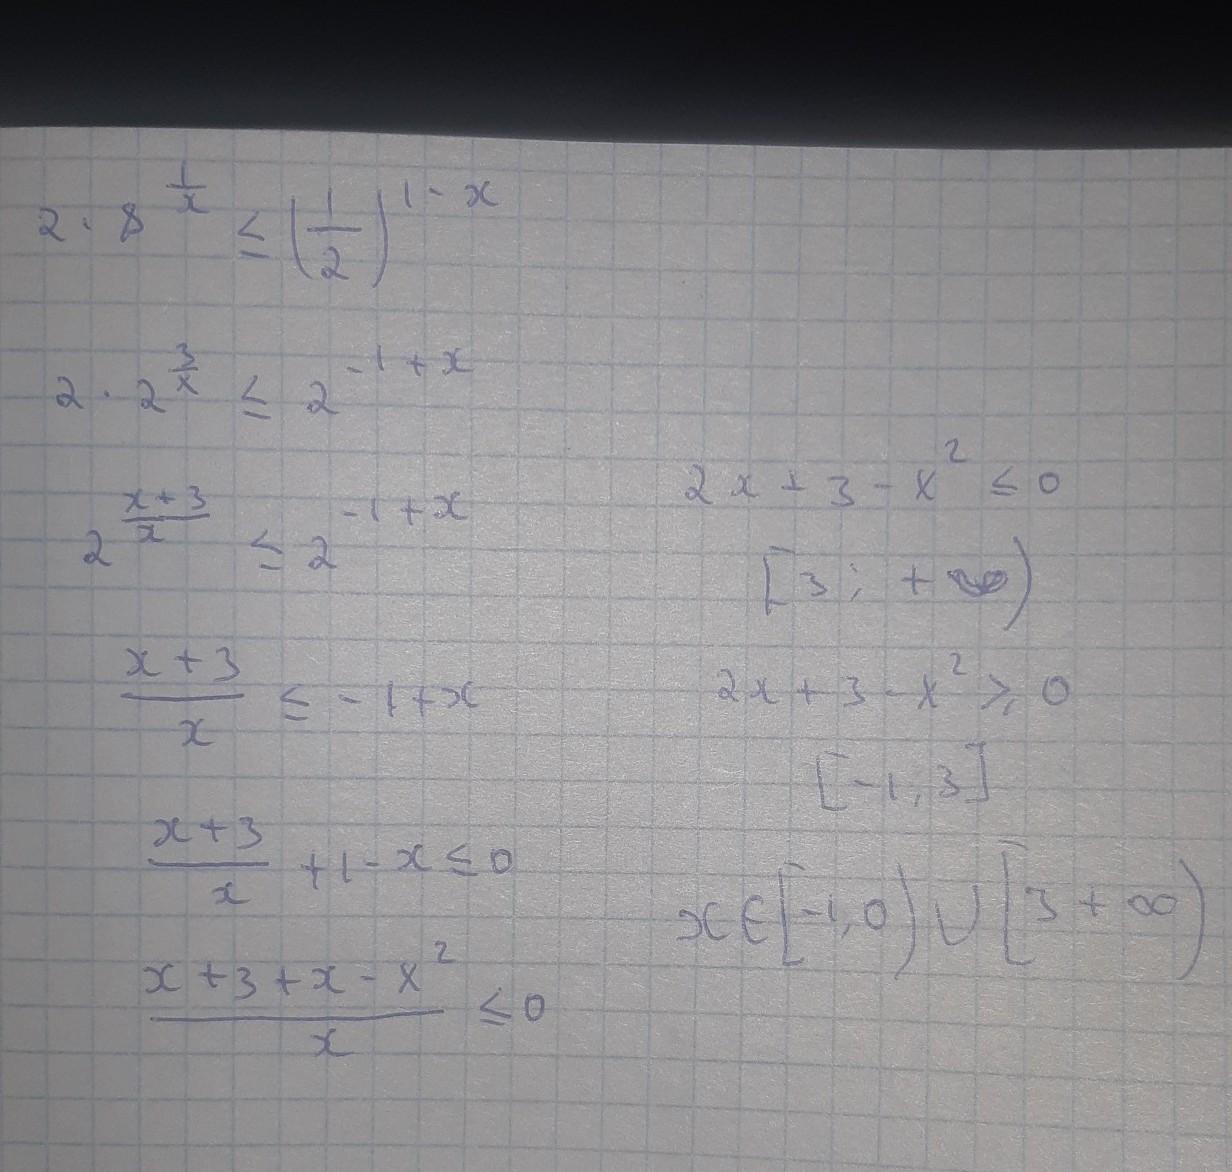 2 · 8^(1/x) ≤ (1/2)^(1-x)
2 · 2^(3/x) ≤ 2^(-1+x)
2^((x+3)/x) ≤ 2^(-1+x)
(x+3)/x ≤ -1+x
(x+3)/x +1-x ≤ 0
(x+3+x-x²)/x ≤ 0
2x+3-x² ≤ 0
[3; +∞)
2x+3-x² ≥ 0
[-1, 3]
x∈[-1,0)∪[3 +∞)